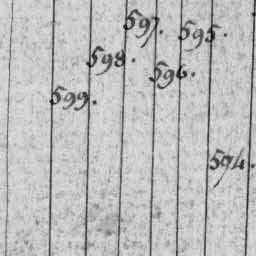 597. 595.
598. 596.
599.
594.